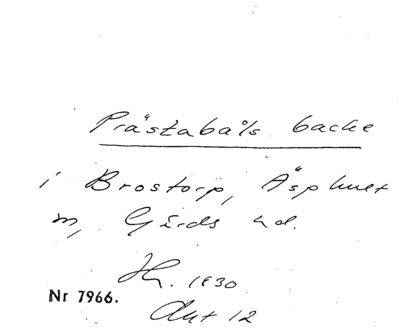 Prästabåls backe
i Brostorp, Äsphult
m, Gärds hd.
1830
Nr 7966.
Akt 12